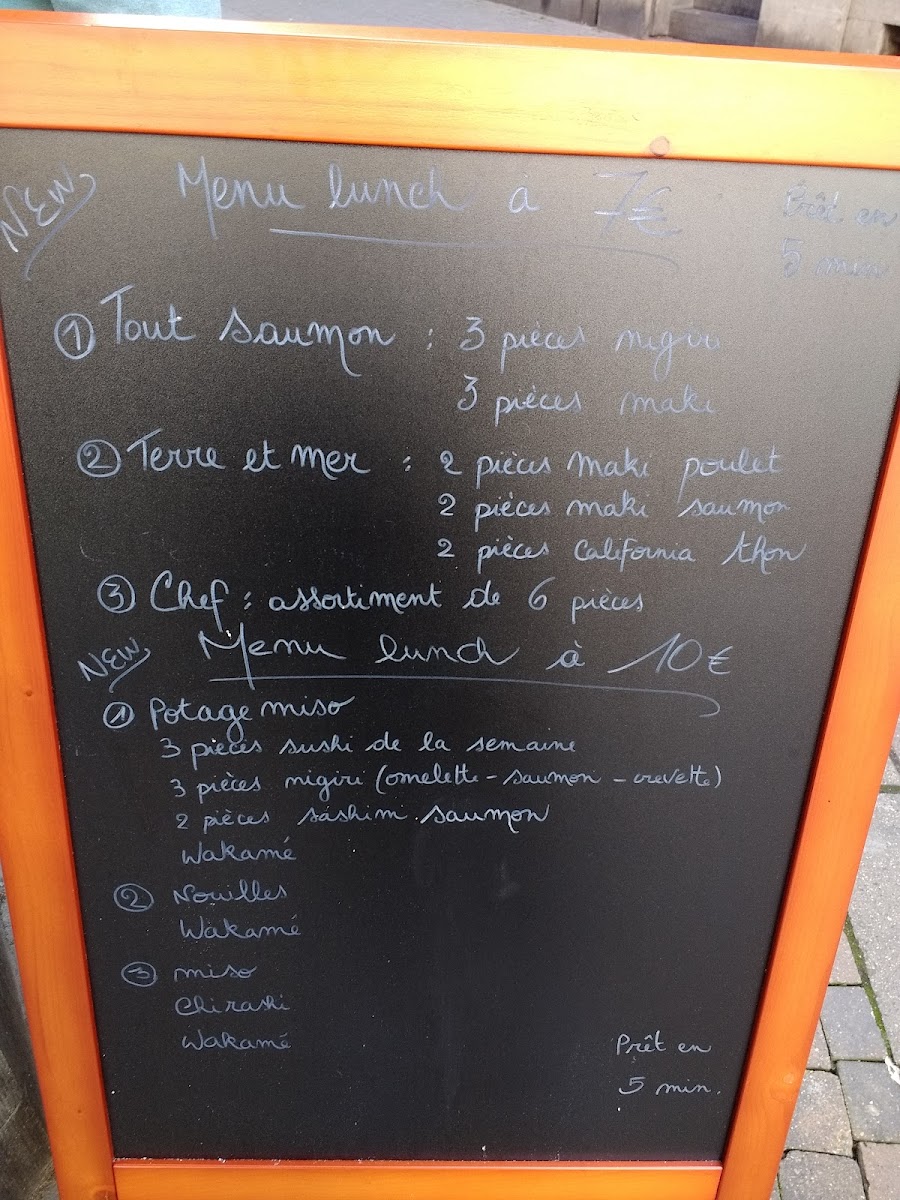 NEW Menu lunch à 7€ Prêt en
5 min
① Tout saumon : 3 pièces nigiri
3 pièces maki
② Terre et mer : 2 pièces maki poulet
2 pièces maki saumon
2 pièces California thon
③ Chef : assortiment de 6 pièces
NEW Menu lunch à 10€
① Potage miso
3 pièces sushi de la semaine
3 pièces nigiri (omelette - saumon - crevette)
2 pièces sashimi saumon
Wakamé
② Nouilles
Wakamé
③ miso
Chirashi
Wakamé
Prêt en
5 min.